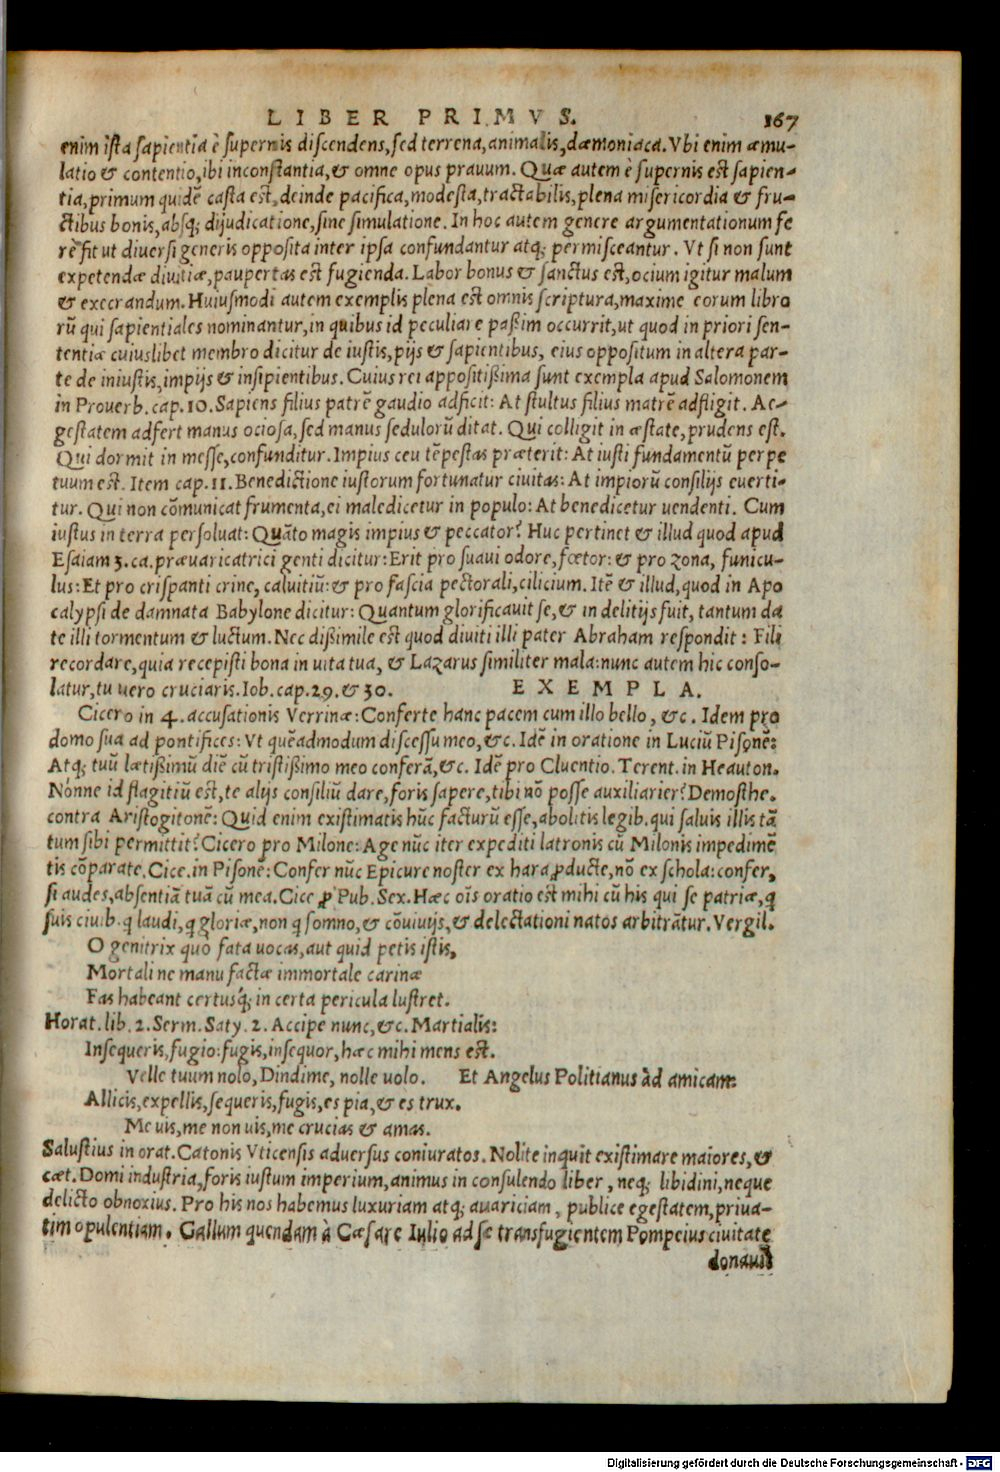 LIBER PRIMVS. 167
enim ista sapientia è supernis discendens, sed terrena, animalis, dæmoniaca. Vbi enim æmu-
latio & contentio, ibi inconstantia, & omne opus prauum. Quæ autem è supernis est sapien-
tia, primum quidē casta est, deinde pacifica, modesta, tractabilis, plena misericordia & fru-
ctibus bonis, absq; dijudicatione, sine simulatione. In hoc autem genere argumentationum fe
rē fit ut diuersi generis opposita inter ipsa confundantur atq; permisceantur. Vt si non sunt
expetendæ diuitiæ, paupertas est fugienda. Labor bonus & sanctus est, ocium igitur malum
& execrandum. Huiusmodi autem exemplis plena est omnis scriptura, maxime eorum libro
rū qui sapientiales nominantur, in quibus id peculiare paßim occurrit, ut quod in priori sen-
tentiæ cuiuslibet membro dicitur de iustis, pijs & sapientibus, eius oppositum in altera par-
te de iniustis, impijs & insipientibus. Cuius rei appositißima sunt exempla apud Salomonem
in Prouerb. cap. 10. Sapiens filius patrē gaudio adficit: At stultus filius matrē adfligit. Ae-
gestatem adfert manus ociosa, sed manus sedulorū ditat. Qui colligit in æstate, prudens est.
Qui dormit in messe, confunditur. Impius ceu tēpestas præterit: At iusti fundamentū perpe
tuum est. Item cap. 11. Benedictione iustorum fortunatur ciuitas: At impiorū consilijs euerti-
tur. Qui non cōmunicat frumenta, ei maledicetur in populo: At benedicetur uendenti. Cum
iustus in terra persoluat: Quāto magis impius & peccator? Huc pertinet & illud quod apud
Esaiam 3. ca. præuaricatrici genti dicitur: Erit pro suaui odore, fœtor: & pro zona, funicu-
lus: Et pro crispanti crine, caluitiū: & pro fascia pectorali, cilicium. Itē & illud, quod in Apo
calypsi de damnata Babylone dicitur: Quantum glorificauit se, & in delitijs fuit, tantum da
te illi tormentum & luctum. Nec dißimile est quod diuiti illi pater Abraham respondit: Fili
recordare, quia recepisti bona in uita tua, & Lazarus similiter mala: nunc autem hic conso-
latur, tu uero cruciaris. Iob. cap. 29. & 30. EXEMPLA.
Cicero in 4. accusationis Verrinæ: Conferte hanc pacem cum illo bello, &c. Idem pro
domo sua ad pontifices: Vt quēadmodum discessu meo, &c. Idē in oratione in Luciū Pisonē:
Atq; tuū lætißimū diē cū tristißimo meo conferā, &c. Idē pro Cluentio. Terent. in Heauton.
Nónne id flagitiū est, te alijs consiliū dare, foris sapere, tibi nō posse auxiliarier? Demosthe.
contra Aristogitonē: Quid enim existimatis hūc facturū esse, abolitis legib. qui saluis illis tā
tum sibi permittit? Cicero pro Milone: Age nūc iter expediti latronis cū Milonis impedimē
tis cōparate. Cice. in Pisonē: Confer nūc Epicure noster ex hara ꝓducte, nō ex schola: confer,
si audes, absentiā tuā cū mea. Cice ꝓ Pub. Sex. Hæc oīs oratio est mihi cū his qui se patriæ, q
suis ciuib. q laudi, q gloriæ, non q somno, & cōuiuijs, & delectationi natos arbitrātur. Vergil.
O genitrix quò fata uocas, aut quid petis istis,
Mortali ne manu factæ immortale carinæ
Fas habeant certusq́; incerta pericula lustret.
Horat. lib. 2. Serm. Saty. 2. Accipe nunc, &c. Martialis:
Insequeris, fugio: fugis, insequor, hæc mihi mens est.
Velle tuum nolo, Dindime, nolle uolo. Et Angelus Politianus ad amicam:
Allicis, expellis, sequeris, fugis, es pia, & es trux.
Me uis, me non uis, me crucias & amas.
Salustius in orat. Catonis Vticensis aduersus coniuratos. Nolite inquit existimare maiores, &
cæt. Domi industria, foris iustum imperium, animus in consulendo liber, neq; libidini, neque
delicto obnoxius. Pro his nos habemus luxuriam atq; auariciam, publice egestatem, priua-
tim opulentiam. Gallum quendam à Cæsare Iulio ad se transfugientem Pompeius ciuitate
donauit
Digitalisierung gefördert durch die Deutsche Forschungsgemeinschaft - DFG